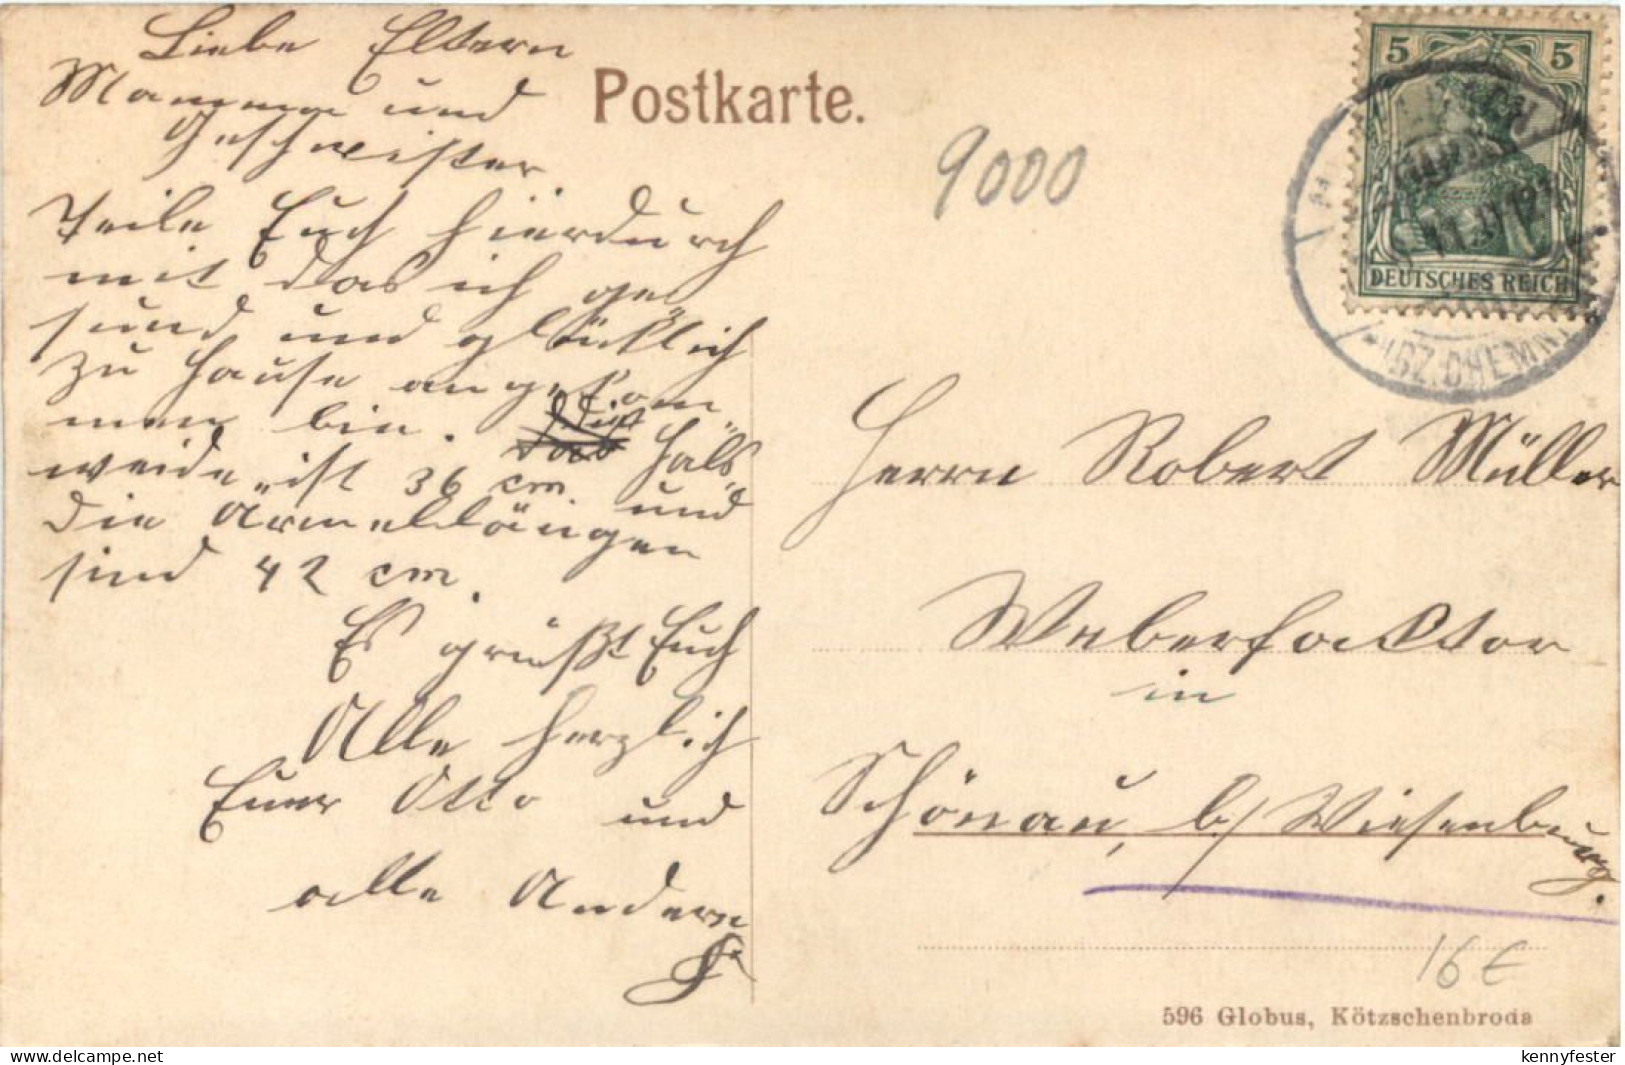 Liebe Eltern
Mamma und
Geschwister
Teile Euch hierdurch
mit das ich ge„
sund und glücklich
zu Hause angekom„
men bin. Die Hals„
weide ist 36 cm und
die Armellängen
sind 42 cm.
Es grüßt Euch
Alle herzlich
Euer Otto und
alle Andern
Postkarte.
9000
5 5
DEUTSCHES REICH
(BZ. CHEMN
Herrn Robert Müller
Weberfacktor
in
Schönau, b/ Wiesenburg.
16 €
596 Globus, Kötzschenbroda
www.delcampe.net
kennyfester